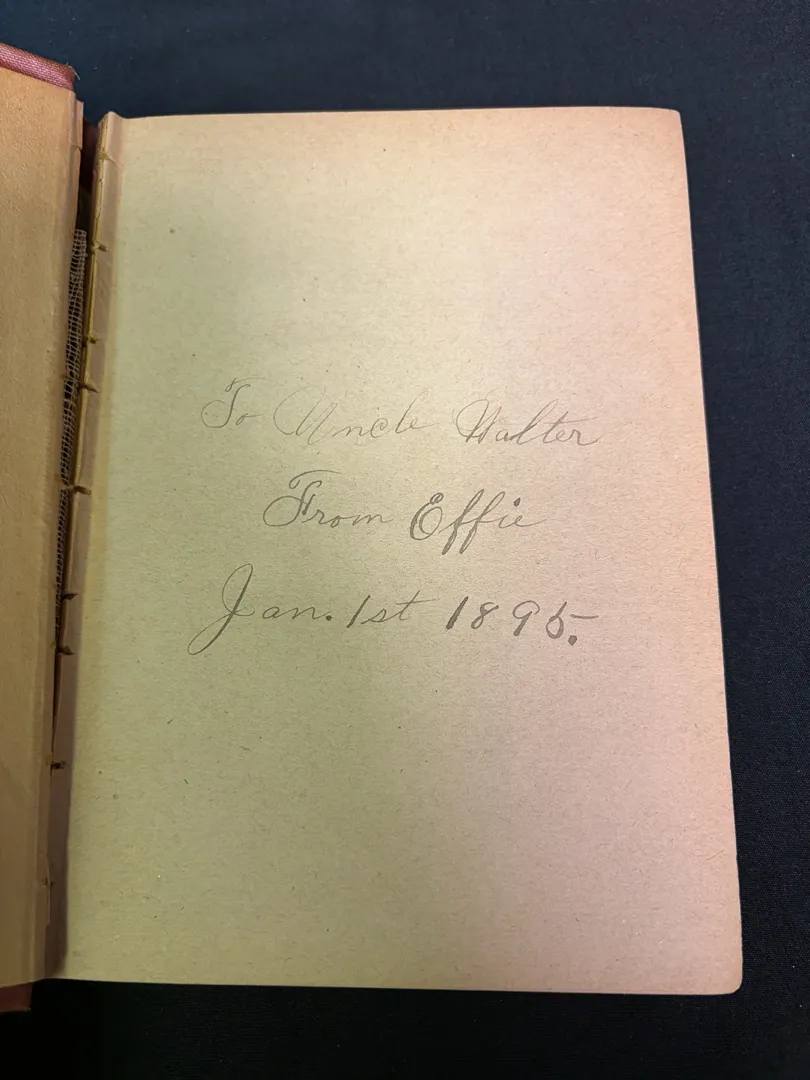 To Uncle Walter
From Effie
Jan. 1st 1895.